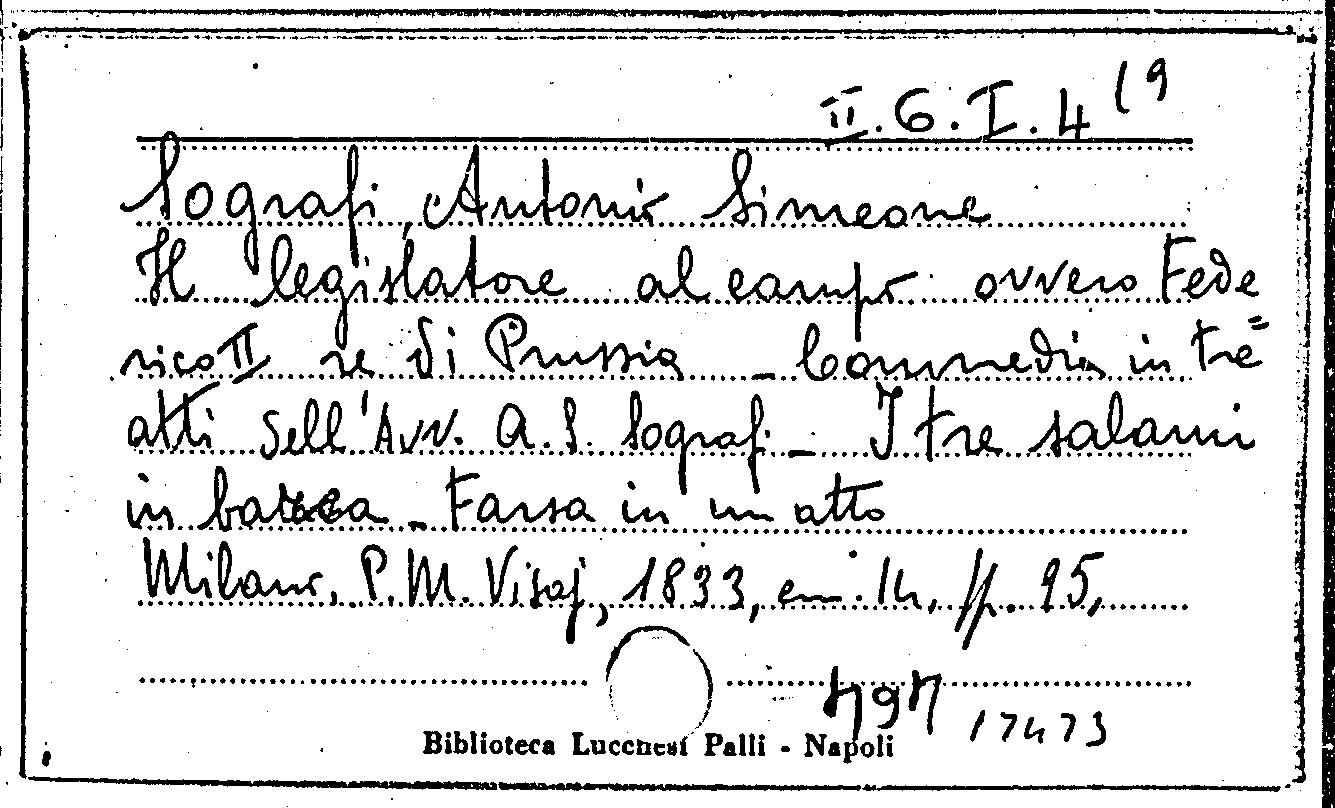 II. 6. I. 4 (9
Sografi, Antonio Simeone
Il legislatore al campo ovvero Fede
rico II re di Prussia - Commedia in tre=
atti dell'Avv. A. S. Sografi - I tre salami
in barca - Farsa in un atto
Milano, P. M. Visaj, 1833, cm. 14, pp. 95,
17473
Biblioteca Lucchesi Palli - Napoli